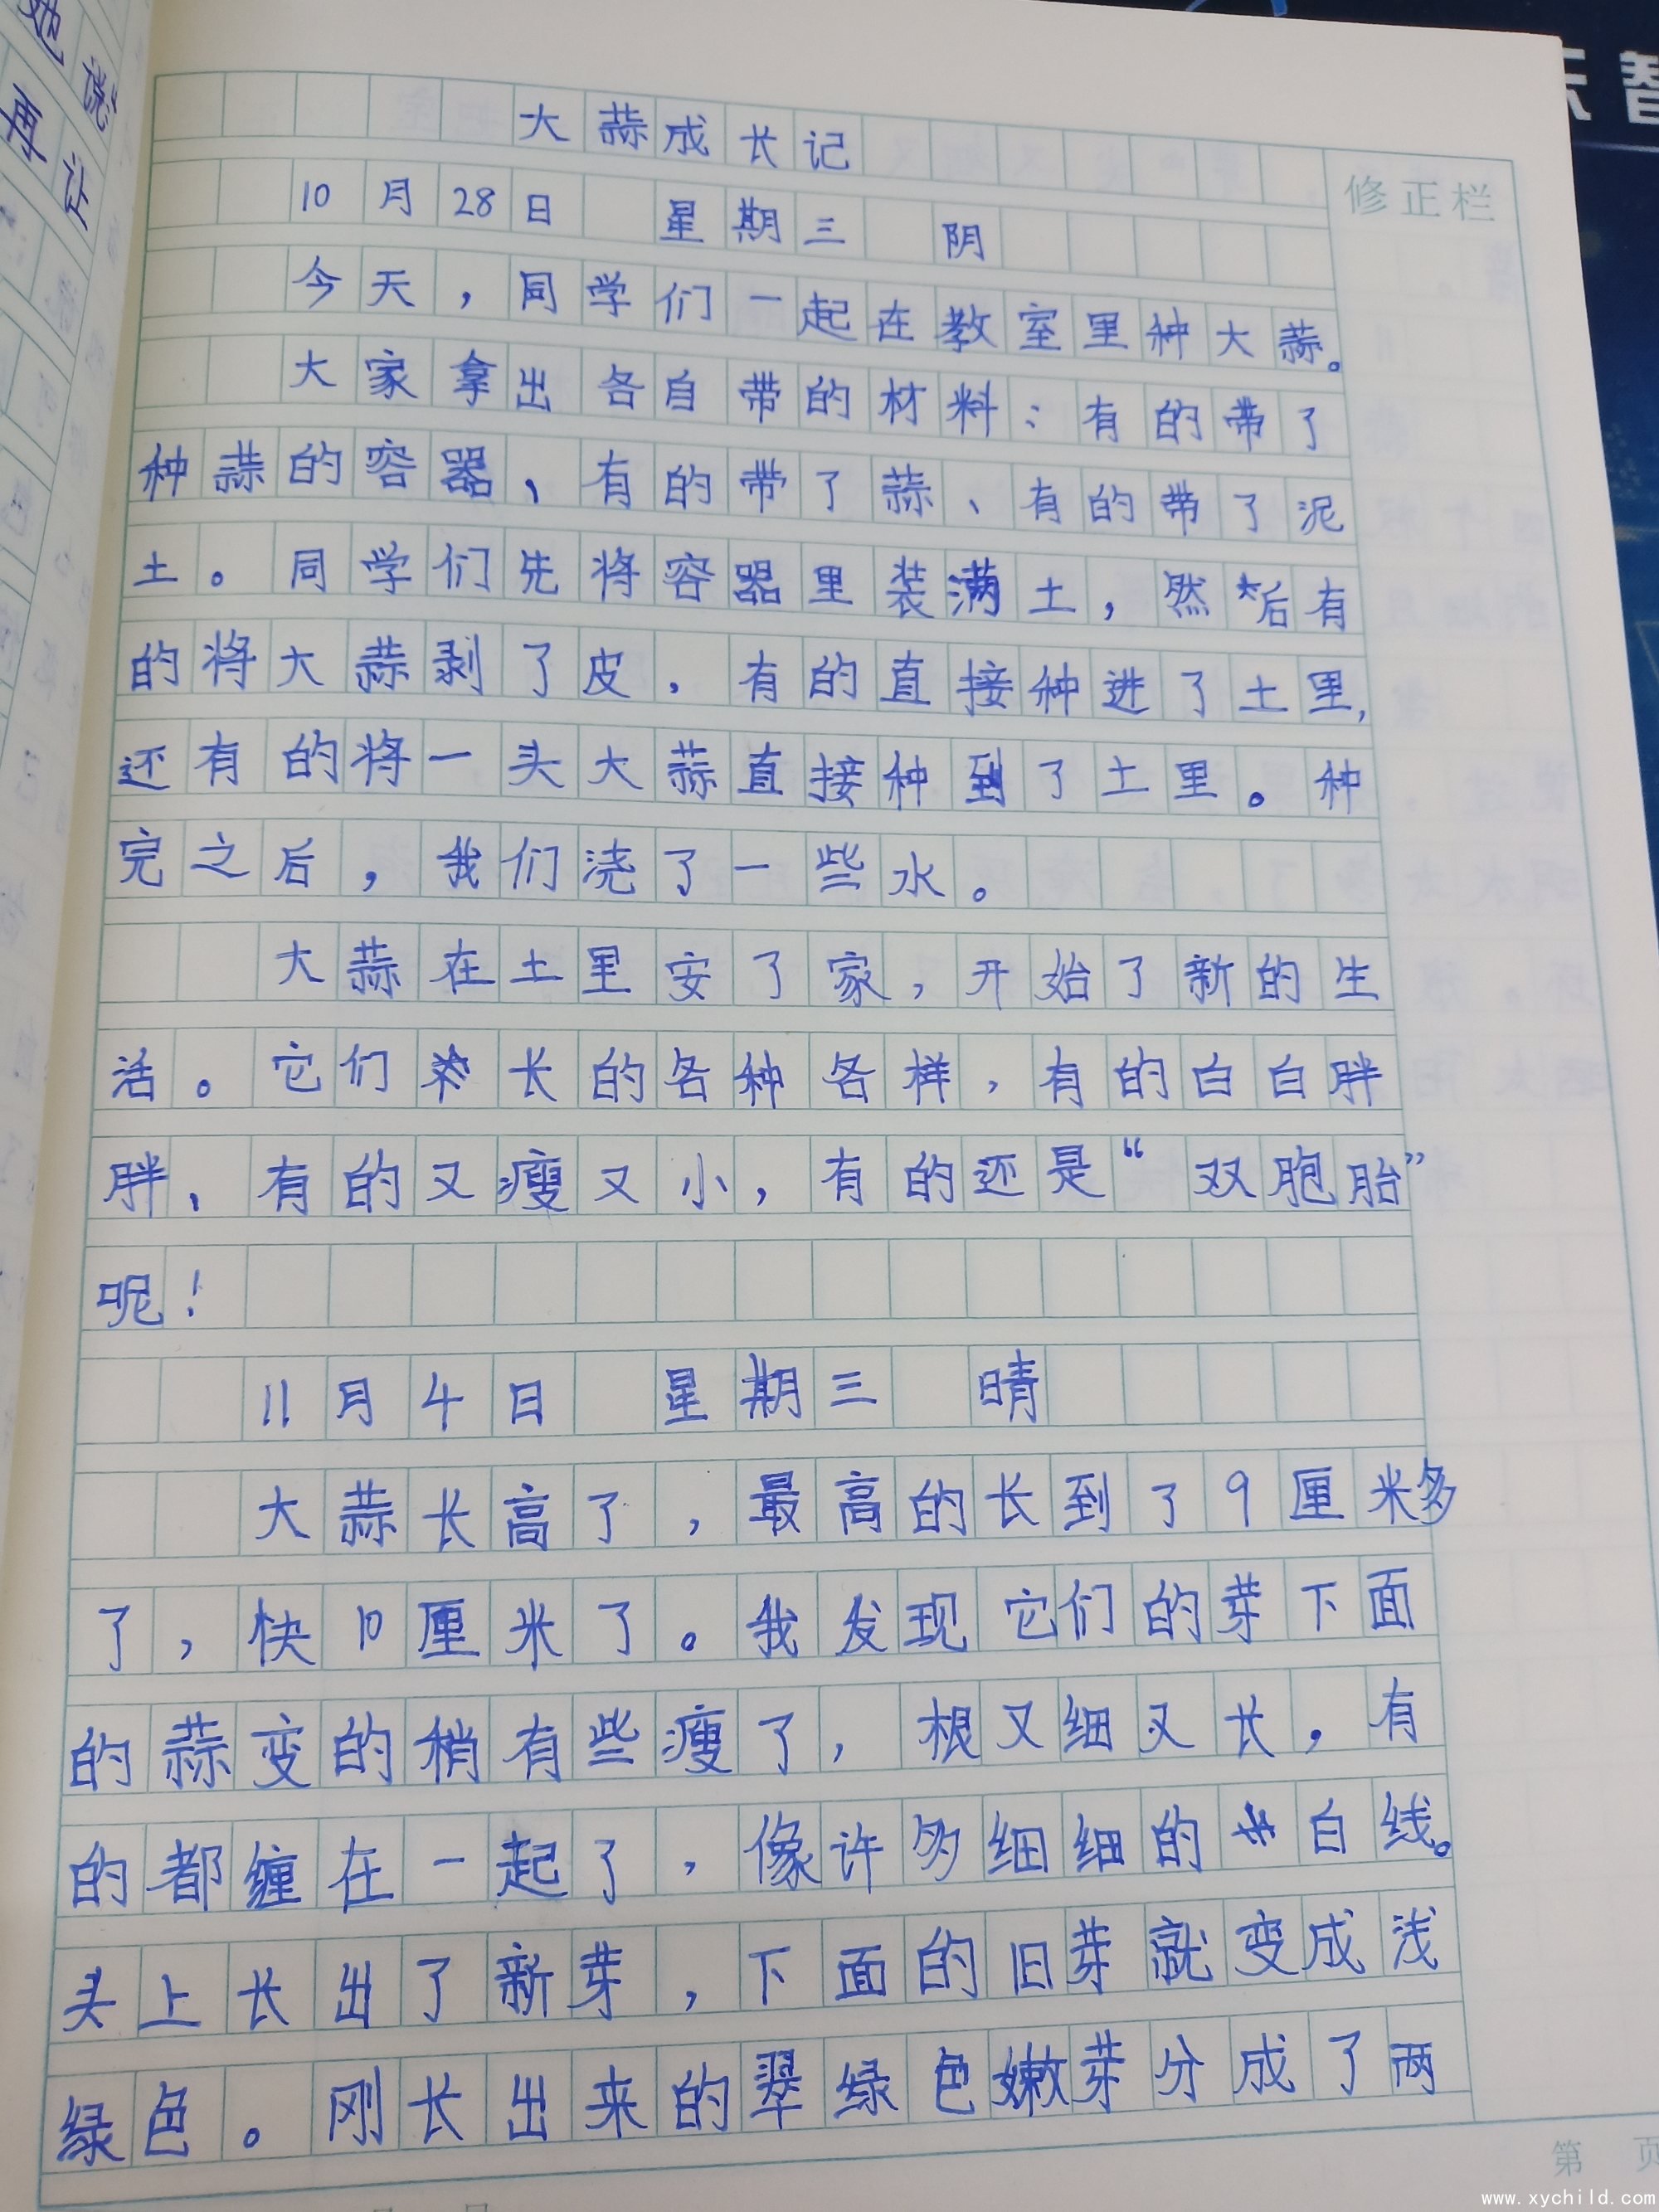 大蒜成长记
修正栏
10月28日 星期三 阴
今天，同学们一起在教室里种大蒜。
大家拿出各自带的材料：有的带了
种蒜的容器、有的带了蒜、有的带了泥
土。同学们先将容器里装满土，然后有
的将大蒜剥了皮，有的直接种进了土里，
还有的将一头大蒜直接种到了土里。种
完之后，我们浇了一些水。
大蒜在土里安了家，开始了新的生
活。它们长的各种各样，有的白白胖
胖、有的又瘦又小，有的还是“双胞胎”
呢！
11月4日 星期三 晴
大蒜长高了，最高的长到了9厘米多
了，快10厘米了。我发现它们的芽下面
的蒜变的稍有些瘦了，根又细又长，有
的都缠在一起了，像许多细细的白线。
头上长出了新芽，下面的旧芽就变成浅
绿色。刚长出来的翠绿色嫩芽分成了两
第 页
www.xychild.com